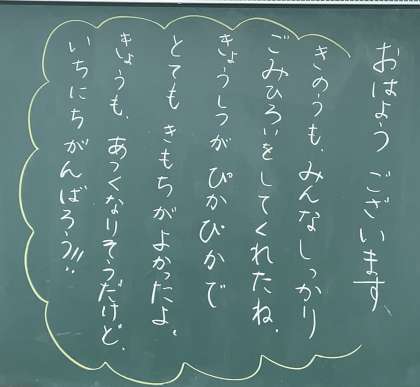 おはよう ございます。
きのうも、みんな しっかり
ごみひろいを してくれたね。
きょうしつが ぴかぴかで
とても きもちが よかったよ。
きょうも、あつくなりそうだけど、
いちにち がんばろう!!